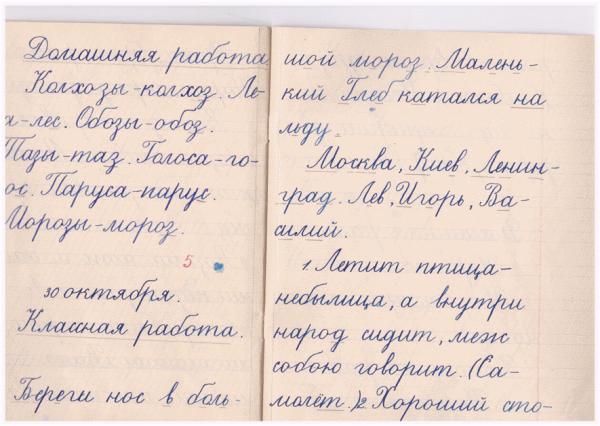 Домашняя работа
Колхозы-колхоз. Ле-
а-лес. Обозы-обоз.
Тазы-таз. Голоса-го-
ос. Паруса-парус.
Морозы-мороз.
5
30 октября.
Классная работа.
Береги нос в боль-
шой мороз. Малень-
кий Глеб катался на
льду.
Москва, Киев, Ленин-
град. Лев, Игорь, Ва-
силий.
1. Летит птица-
небылица, а внутри
народ сидит, меж
собою говорит. (Са-
молёт.) 2. Хороший сто-